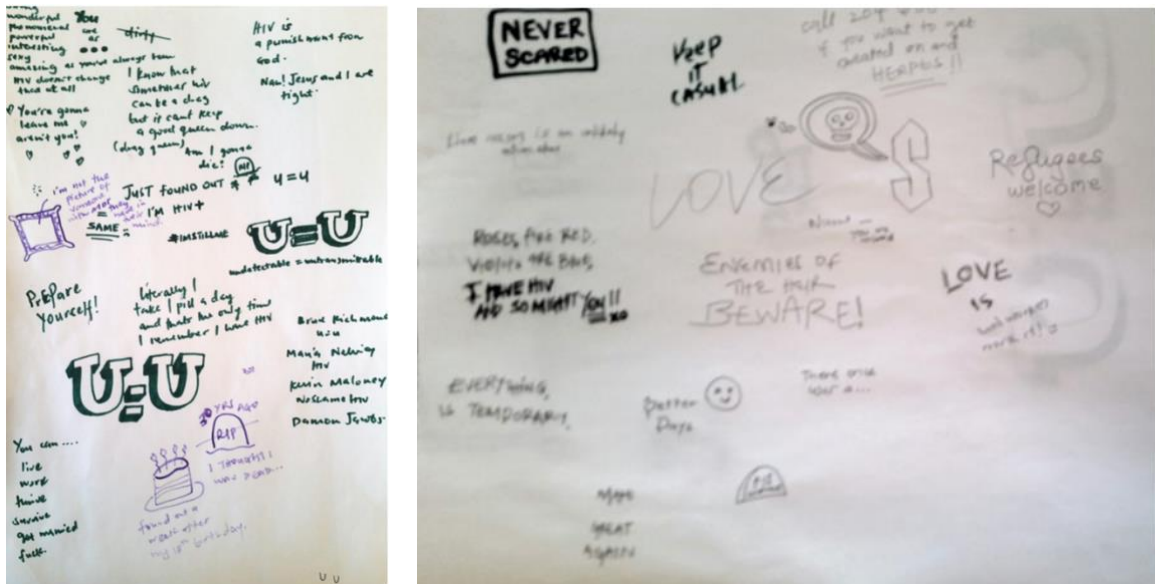 wonderful
phenomenal
powerful
interesting
sexy
amazing as you've always been
HIV doesn't change
that at all
You
are
as
dirty
HIV is
a punishment from
God.
Naw! Jesus and I are
tight.
I know that
sometimes hiv
can be a drag
but it can't keep
a good queen down.
(drag queen)
You're gonna
leave me
aren't you!
Am I gonna
die?
JUST FOUND OUT
I'm HIV+
u=u
i'm not the
picture of
someone
in their
mind.
SAME
#IMSTILLME
U=U
undetectable = untransmittable
PrEPare
Yourself!
literally I
take 1 pill a day
and that's the only time
I remember I have HIV
Bruce Richman
u=u
HIV
Kevin Maloney
Damon Jacobs.
U=U
30 YRS AGO
RIP
I THOUGHT I
WAS DEAD...
found out a
week after
my 18th birthday.
You can ....
live
work
thrive
survive
get married
fuck.
NEVER
SCARED
KEEP
IT
CASUAL
call 204
if you want to get
cheated on and
HERPES!!
LOVE
S
Refugees
welcome
ROSES ARE RED,
VIOLETS ARE BLUE,
I HAVE HIV
AND SO MIGHT YOU!!
xo
ENEMIES OF
THE HUR
BEWARE!
LOVE
IS
EVERYTHING
IS TEMPORARY
Better
Days
There once
was a...
MAKE
GREAT
AGAIN